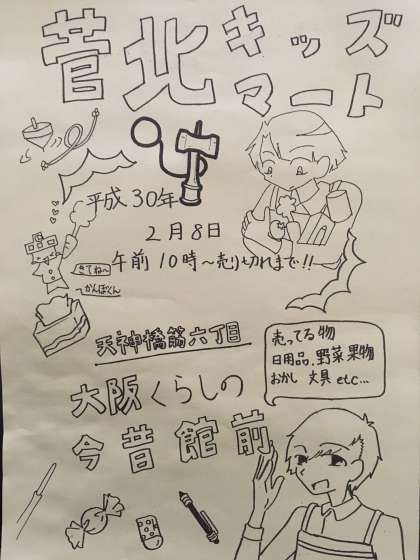 菅北キッズ
マート
平成30年
2月8日
午前10時～売り切れまで!!
きてね～
かんぼくん
天神橋筋六丁目
売ってる物
日用品、野菜果物
おかし 文具 etc...
大阪くらしの
今昔館前